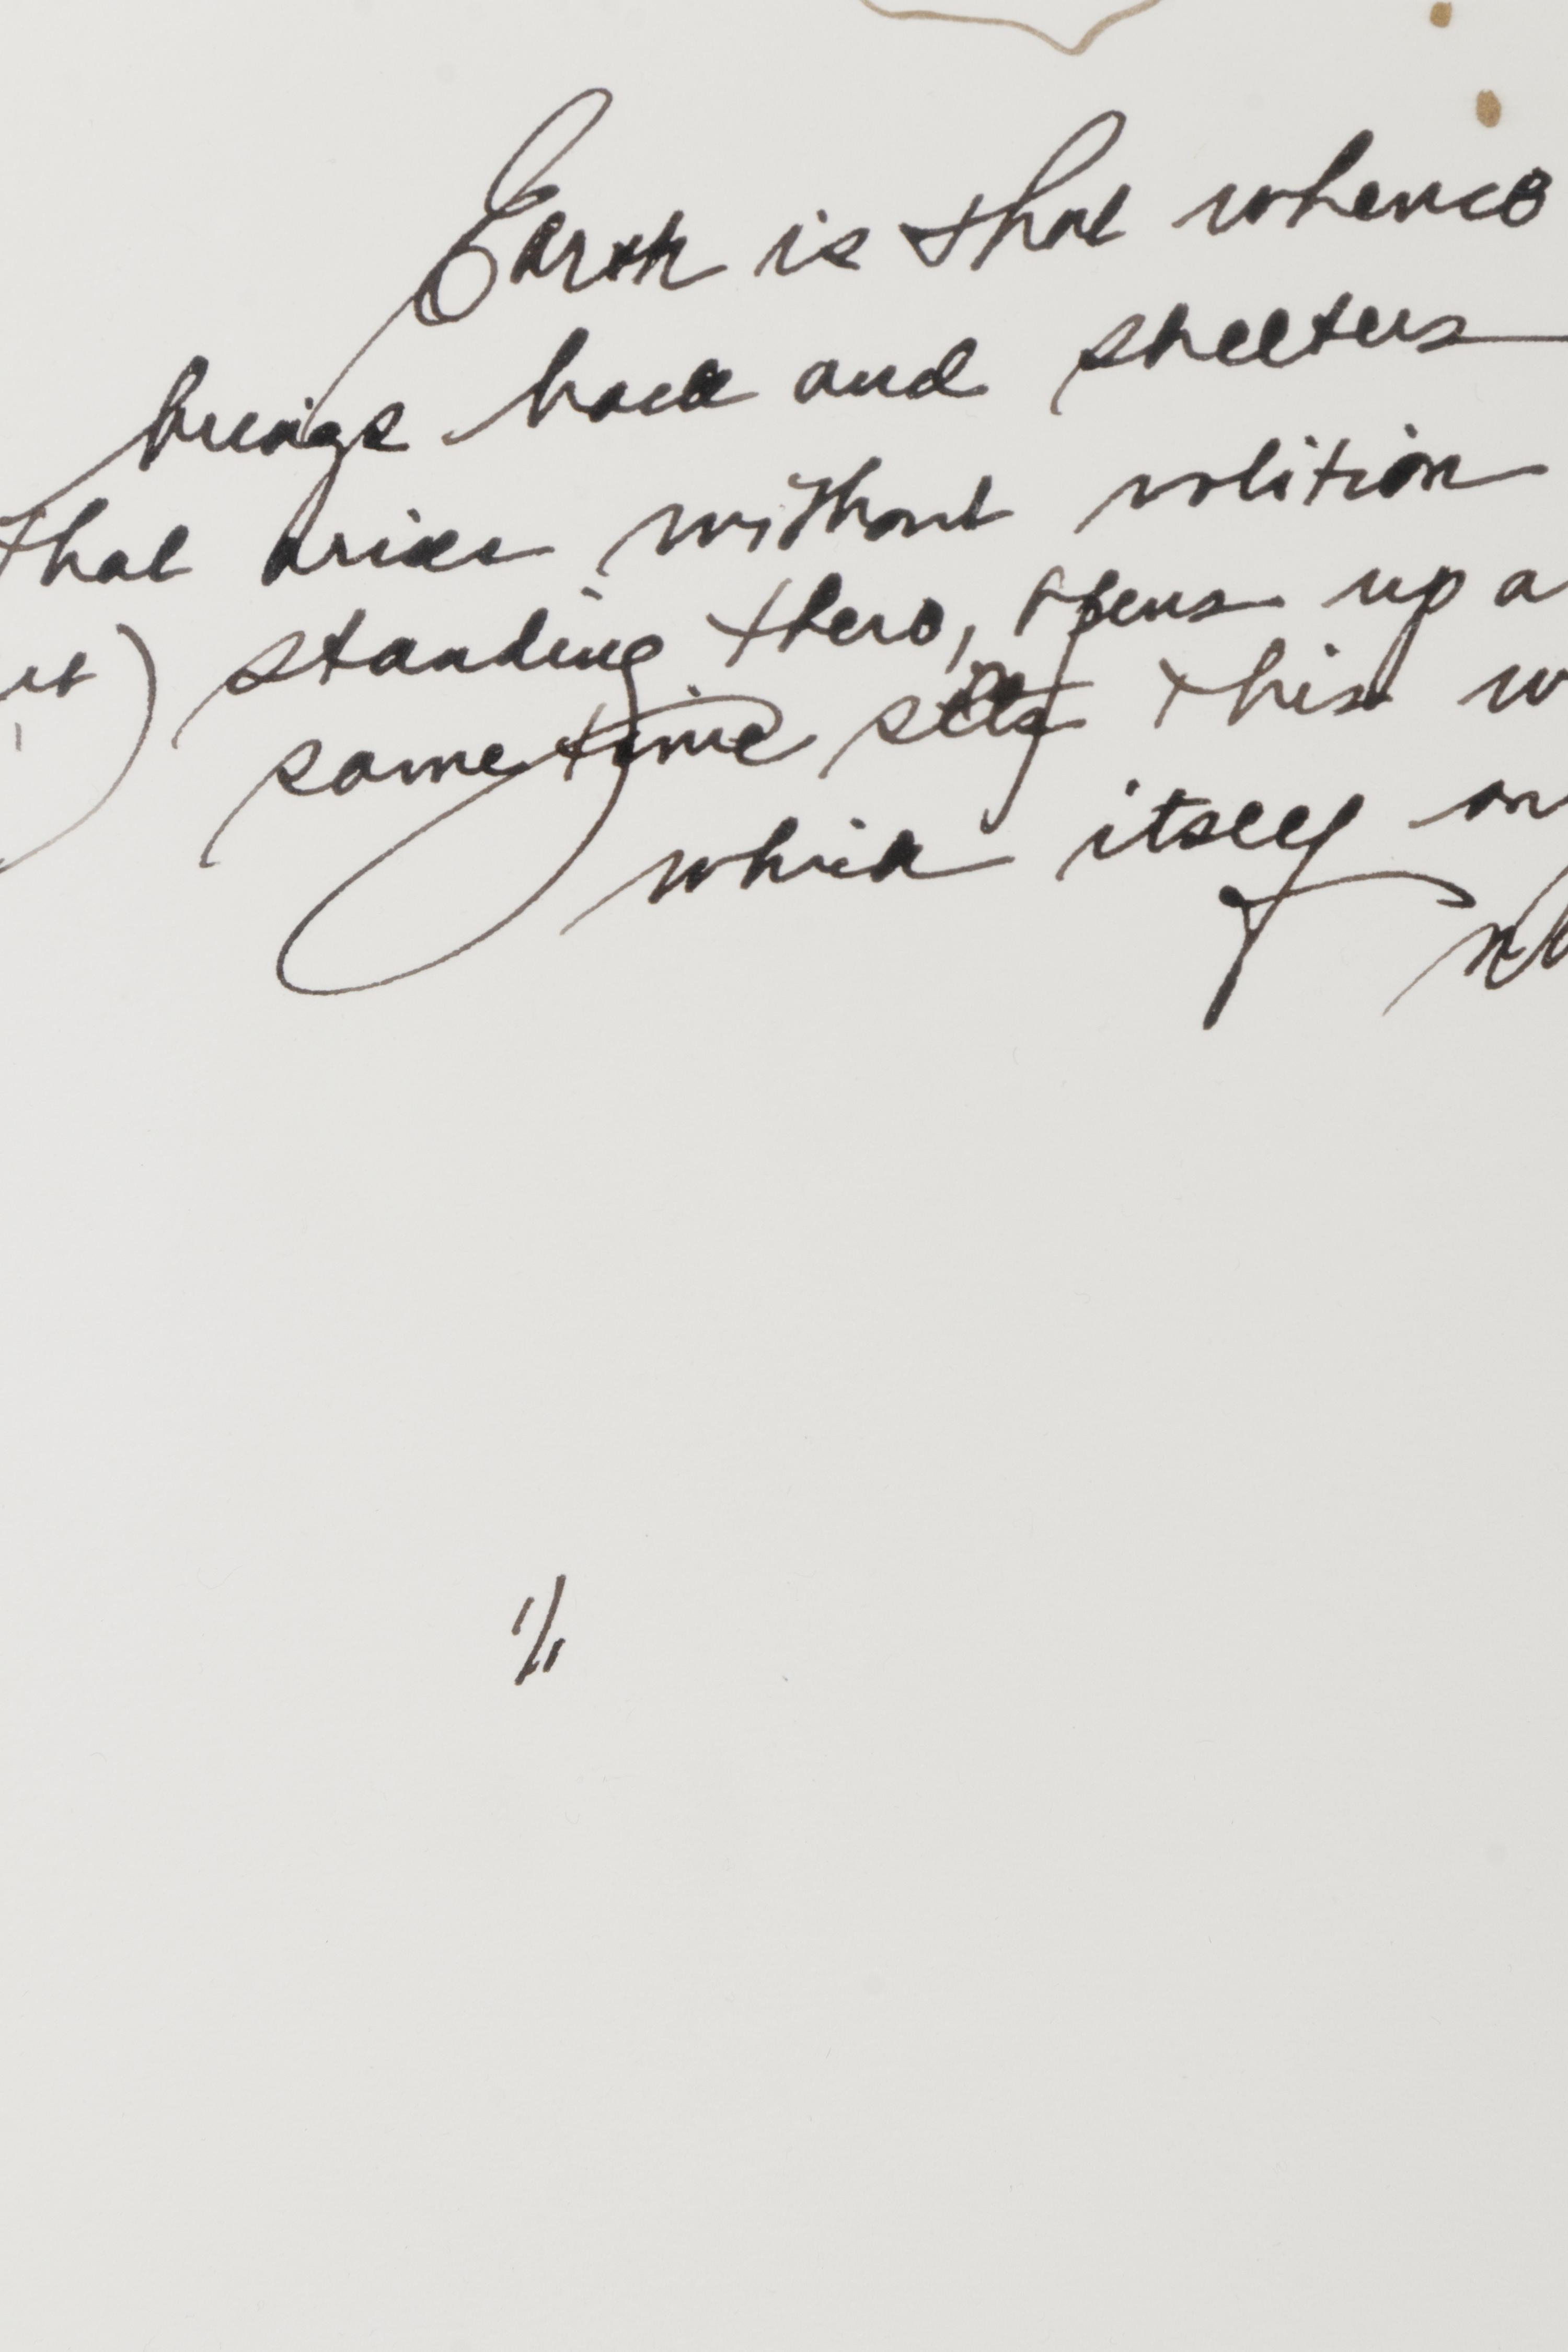 Earth is that whence
brings back and shelters
that arises without volition
standing there, opens up a
same time sets this w
which itself on
1/1